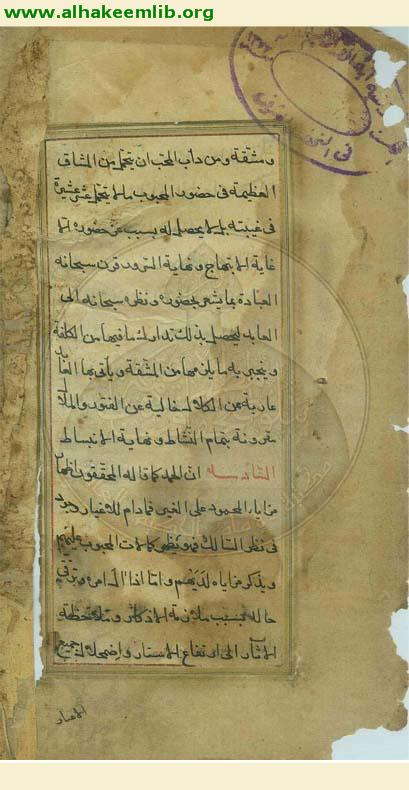 www.alhakeemlib.org
ومشقة ومن داب المحب ان يتحمل من المشاق
العظيمة فى حضور المحبوب ما لا يتحمل عشر عشيره
فى غيبته بل لا يحصل له بسبب عز حضوره الا
غاية الابتهاج ونهاية السرور قرن سبحانه
العبادة بما يشعر بحضوره ونظره سبحانه الى
العابد ليحصل بذلك تدارك ما فيها من الكلفة
وينجبر به ما يلزمها من المشقة ويأتى بها العابد
عارية عن الكلال خالية عن الفتور والملال
مقرونة بتمام النشاط ونهاية الانبساط
السادسة ان الحمد كما قاله المحققون اظهار
مزايا المحمود على الغير فما دام للاغيار وجود
فى نظر السالك فهو يظهر كمالات المحبوب عليهم
ويذكر مزاياه لديهم واما اذا آل امره وترقى
حاله بسبب ملازمة الاذكار وملاحظة
الاثار الى ارتفاع الاستار واضمحلال جميع
الاغيار